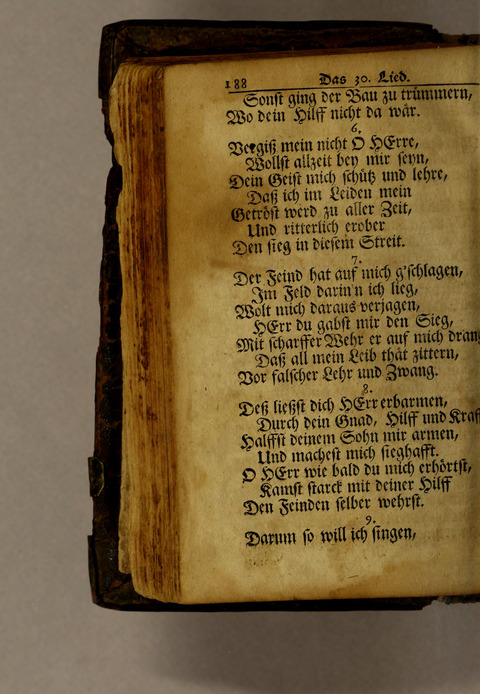 188 Das 30. Lied.
Sonst ging der Bau zu trümmern,
Wo dein Hilff nicht da wår.
6.
Vergiß mein nicht O HErre,
Wollst allzeit bey mir seyn,
Dein Geist mich schütz und lehre,
Daß ich im Leiden mein
Getröst werd zu aller Zeit,
Und ritterlich erober
Den sieg in diesem Streit.
7.
Der Feind hat auf mich g'schlagen,
Im Feld darinn ich lieg,
Wolt mich daraus verjagen,
HErr du gabst mir den Sieg,
Mit scharffer Wehr er auf mich drang
Daß all mein Leib thåt zittern,
Vor falscher Lehr und Zwang.
8.
Deß ließst dich HErr erbarmen,
Durch dein Gnad, Hilff und Kraf
Halffst deinem Sohn mir armen,
Und machest mich sieghafft.
O HErr wie bald du mich erhörtst,
Kamst starck mit deiner Hilff
Den Feinden selber wehrst.
9.
Darum so will ich singen,